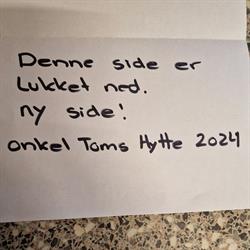 Denne side er
Lukket ned.
ny side!
onkel Toms Hytte 2024